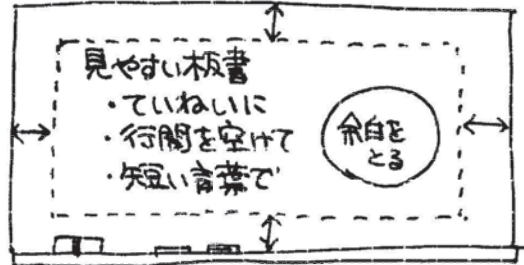 見やすい板書
・ていねいに
・行間を空けて
・短い言葉で
余白を
とる